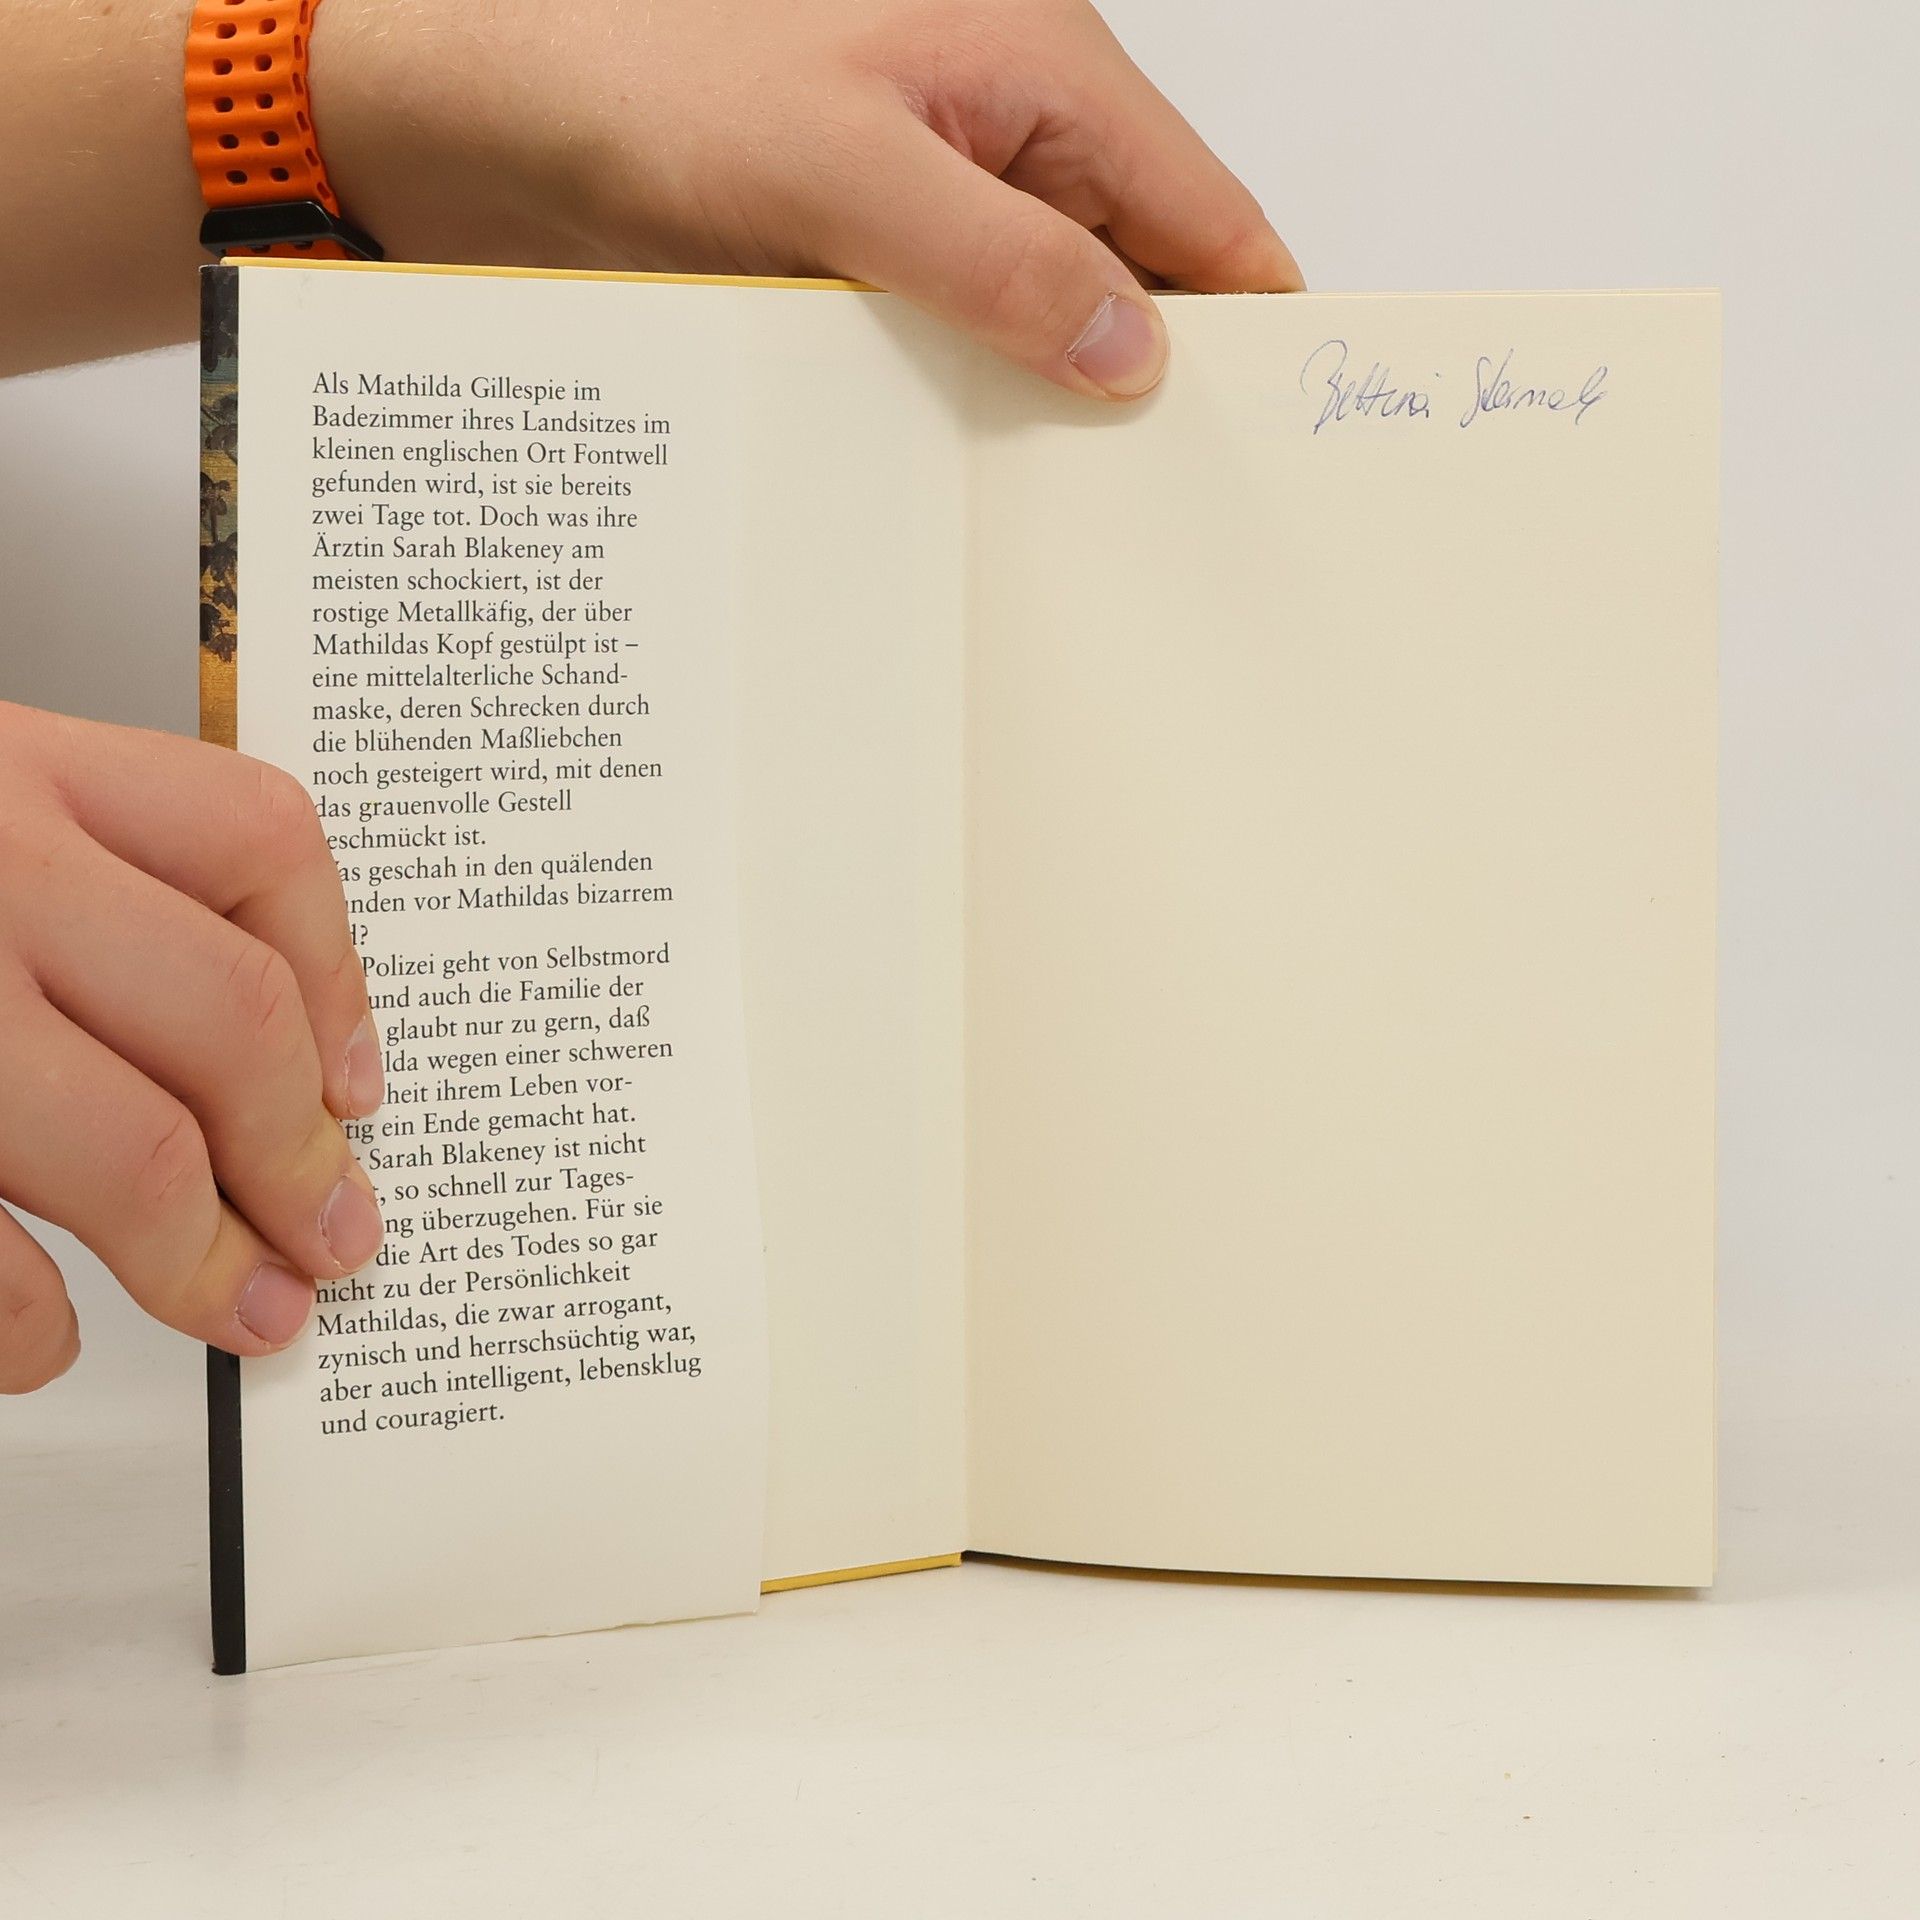 Als Mathilda Gillespie im
Badezimmer ihres Landsitzes im
kleinen englischen Ort Fontwell
gefunden wird, ist sie bereits
zwei Tage tot. Doch was ihre
Ärztin Sarah Blakeney am
meisten schockiert, ist der
rostige Metallkäfig, der über
Mathildas Kopf gestülpt ist –
eine mittelalterliche Schand-
maske, deren Schrecken durch
die blühenden Maßliebchen
noch gesteigert wird, mit denen
das grauenvolle Gestell
eschmückt ist.
as geschah in den quälenden
nden vor Mathildas bizarrem
d?
Polizei geht von Selbstmord
und auch die Familie der
glaubt nur zu gern, daß
lda wegen einer schweren
heit ihrem Leben vor-
tig ein Ende gemacht hat.
Sarah Blakeney ist nicht
, so schnell zur Tages-
ng überzugehen. Für sie
die Art des Todes so gar
nicht zu der Persönlichkeit
Mathildas, die zwar arrogant,
zynisch und herrschsüchtig war,
aber auch intelligent, lebensklug
und couragiert.
Bettina